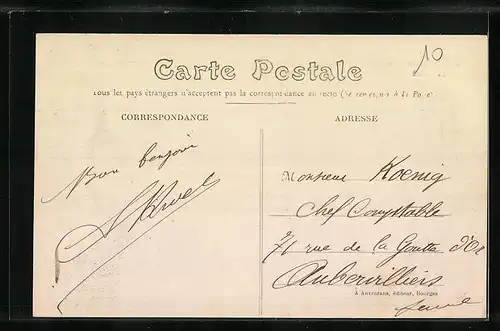 10
Carte Postale
Tous les pays étrangers n'acceptent pas la correspondance au recto (Se renseigner à la Poste)
CORRESPONDANCE
ADRESSE
Mon bonjour
Monsieur Koenig
Chef Comptable
71 rue de la Goutte d'Or
Aubervilliers
A. Auxenfans, éditeur, Bourges
Seine